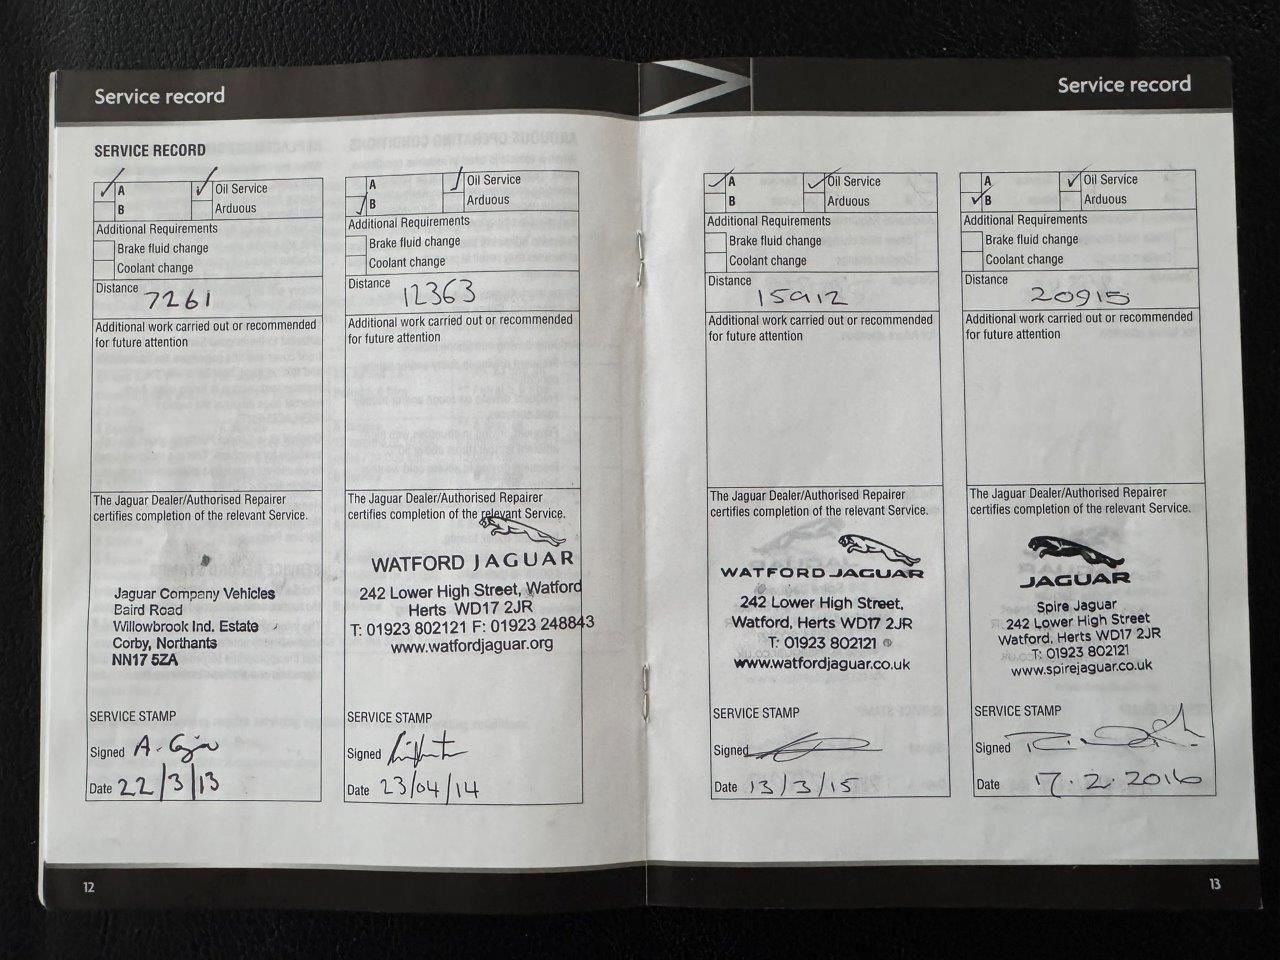 Service record
SERVICE RECORD
A
Oil Service
B
Arduous
Additional Requirements
Brake fluid change
Coolant change
Distance
7261
Additional work carried out or recommended
for future attention
The Jaguar Dealer/Authorised Repairer
certifies completion of the relevant Service.
Jaguar Company Vehicles
Baird Road
Willowbrook Ind. Estate
Corby, Northants
NN17 5ZA
SERVICE STAMP
Signed
Date 22/3/13
A
Oil Service
B
Arduous
Additional Requirements
Brake fluid change
Coolant change
Distance
12363
Additional work carried out or recommended
for future attention
The Jaguar Dealer/Authorised Repairer
certifies completion of the relevant Service.
WATFORD JAGUAR
242 Lower High Street, Watford
Herts WD17 2JR
T: 01923 802121 F: 01923 248843
www.watfordjaguar.org
SERVICE STAMP
Signed
Date 23/04/14
12
Service record
A
Oil Service
B
Arduous
Additional Requirements
Brake fluid change
Coolant change
Distance
15912
Additional work carried out or recommended
for future attention
The Jaguar Dealer/Authorised Repairer
certifies completion of the relevant Service.
WATFORD JAGUAR
242 Lower High Street,
Watford, Herts WD17 2JR
T: 01923 802121
www.watfordjaguar.co.uk
SERVICE STAMP
Signed
Date 13/3/15
A
Oil Service
B
Arduous
Additional Requirements
Brake fluid change
Coolant change
Distance
20915
Additional work carried out or recommended
for future attention
The Jaguar Dealer/Authorised Repairer
certifies completion of the relevant Service.
JAGUAR
Spire Jaguar
242 Lower High Street
Watford, Herts WD17 2JR
T: 01923 802121
www.spirejaguar.co.uk
SERVICE STAMP
Signed
Date 17.2.2016
13